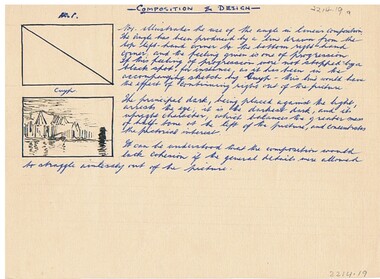 — COMPOSITION & DESIGN —
2214-19a
No. 1.
No 1. illustrates the use of the angle in linear composition.
An angle has been produced by a line drawn from the
top left-hand corner to the bottom right-hand
corner, and the feeling given is one of progression.
If this feeling of progression were not stopped by a
black spot, for instance, as it has been in the
accompanying sketch by Cuyp - this line would have
the effect of continuing right out of the picture.
Cuyp
The principal dark, being placed against the light,
arrests the eye, it is the darkest dark, and its
upright character, which balances the greater mass
of half-tone at the left of the picture, and concentrates
the pictorial interest.
It can be understood that the composition would
lack cohesion if the general details were allowed
to straggle aimlessly out of the picture.
2214-19